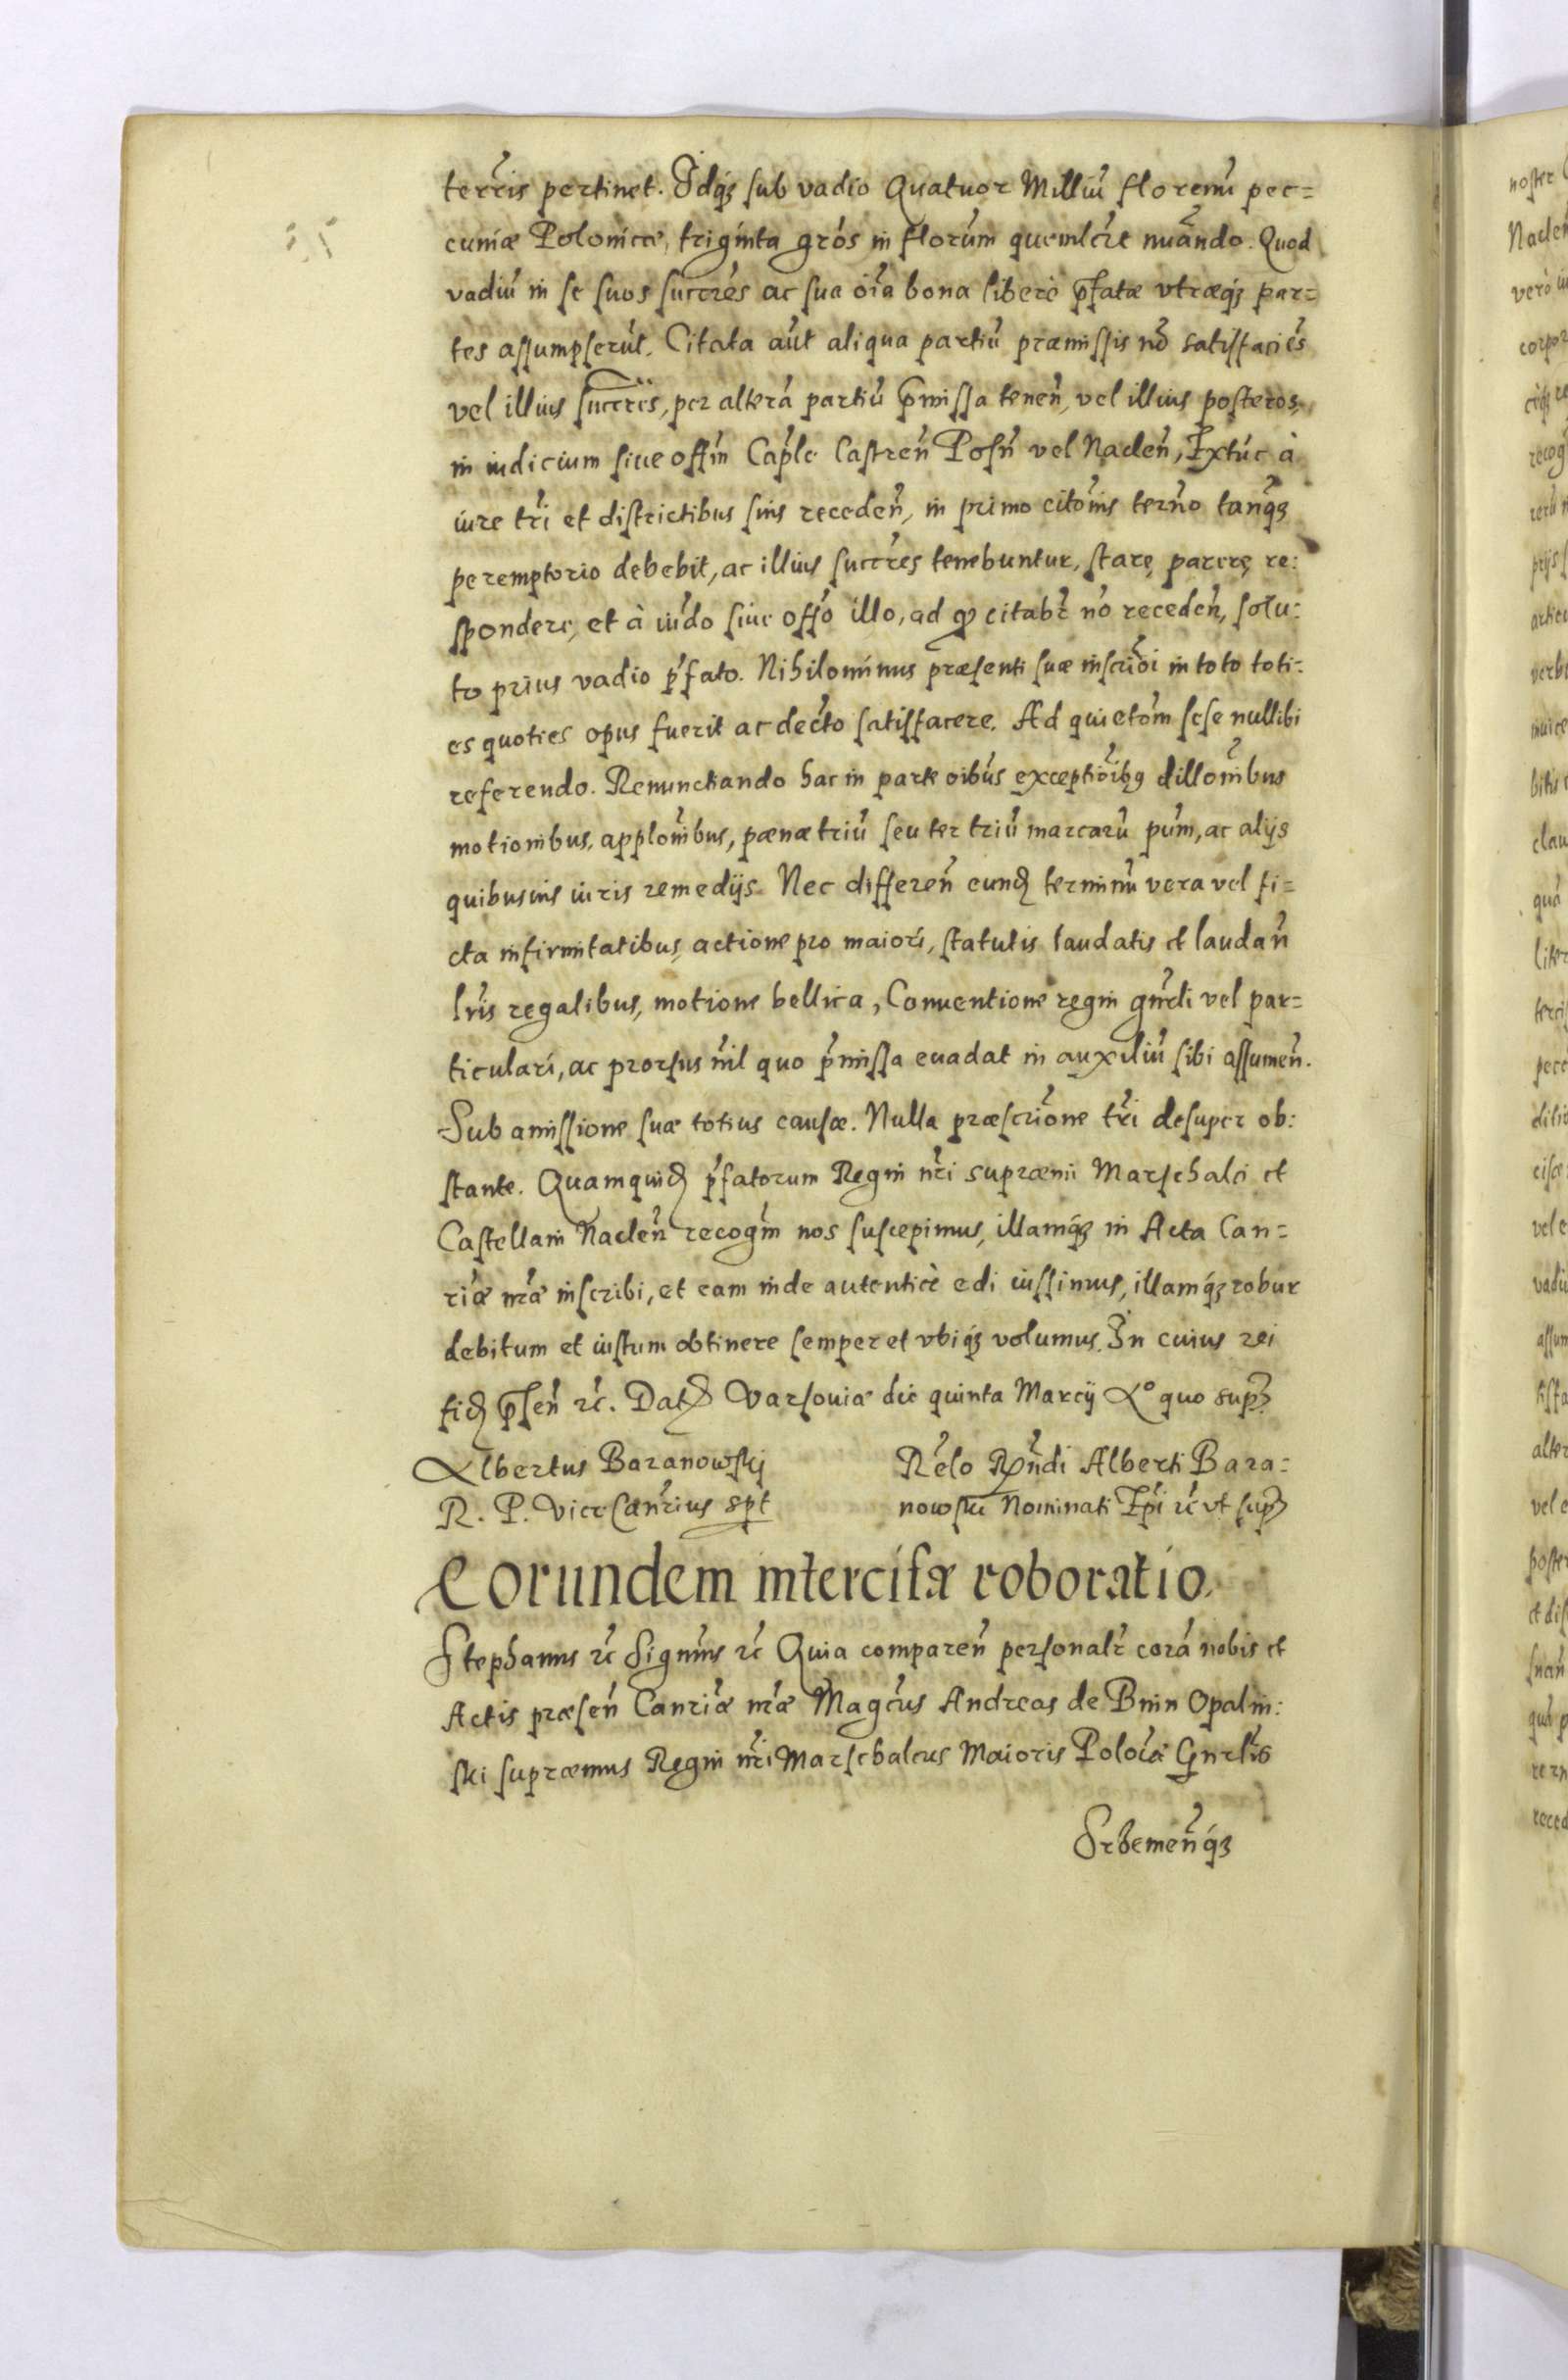 terrīs pertinet. Idq́ꝫ sub vadio Quatuor Milliū florenū pec=
cuniæ Polonicæ, triginta grós in florūm quemlcꝫ nūando. Quod
vadiū in se suos succrēs ac sua oīa bona libere p̄fatæ vtræq́ꝫ par=
tes assumpserūt. Citata aūt aliqua partiū præmissis nō satisfaciēs
vel illius succrēs, per alterā partiū p̄missa tenen̄, vel illius posteros,
in iudicium siue offm̄ Cap̄le Castren̄ Posn̄ vel Naclen̄, Extūc à
iure trī et districtibus suis receden̄, in primo citōnis tern̄o tanq́ꝫ
peremptorio debebit, ac illius succrēs tenebuntur, stare, parere, re:
spondere, et à iūdo siue offō illo, ad qd citabr̄ nō receden̄, solu:
to prius vadio p̄fato. Nihilominus præsenti suæ inscriōi in toto toti:
es quoties opus fuerit ac decr̄to satisfacere. Ad quietōm sese nullibi
referendo. Renunctiando hac in parte oībus exceptiōibꝯ dillōnibus
motionibus, applōnibus, pænæ triū seu ter triū marcarū pūm, ac alijs
quibusuis iuris remedijs. Nec differen̄ eund terminū vera vel fi=
cta infirmitatibus, actione pro maiori, statutis laudatis et laudan̄
lrīs regalibus, motione bellica, Conuentione regni gn̄rali vel par=
ticulari, ac prorsus nīl quo p̄missa euadat in auxiliū sibi assumen̄.
Sub amissione suæ totius causæ. Nulla præscriōne trī desuper ob:
stante. Quamquid p̄fatorum Regni nr̄i supræmi Marschalci et
Castellani Naclen̄ recogm̄ nos suscepimus, illamq́ꝫ in Acta Can=
riæ nr̄æ inscribi, et eam inde autenticè edi iussimus, illamq́ꝫ robur
debitum et iustum obtinere semper et vbiq́ꝫ volumus. In cuius rei
fid p̄sen̄ rc̄. Dat Varsouiæ die quinta Marcij Aº quo sup
Albertus Baranowskj
R. P. ViceCan̄rius sp̄t
Rēlo Rn̄di Alberti Bara=
nowski Nominati Ep̄i rc̄ vt sup
Eorundem intercisæ roboratio.
Stephanus rc̄ Signm̄s rc̄ Quia comparen̄ personalr̄ corā nobis et
Actis præsen̄ Canriæ nr̄æ Magcūs Andreas de Bnin Opalin:
ski supræmus Regni nr̄i Marschalcus Maioris Poloīæ Gnrl̄is
Srzemen̄q́ꝫ